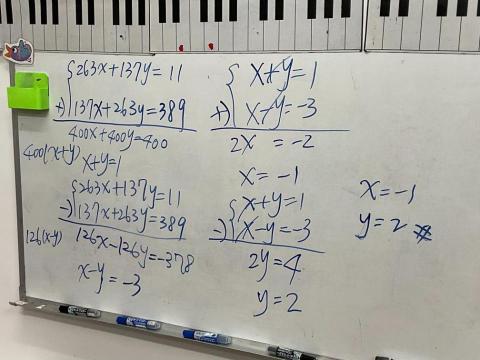 263x+137y=11
+) 137x+263y=389
400x+400y=400
400(x+y)
x+y=1
263x+137y=11
-) 137x+263y=389
126(x-y)
126x-126y=-378
x-y=-3
x+y=1
+) x-y=-3
2x = -2
x = -1
x+y=1
-) x-y=-3
2y=4
y=2
x=-1
y=2 #